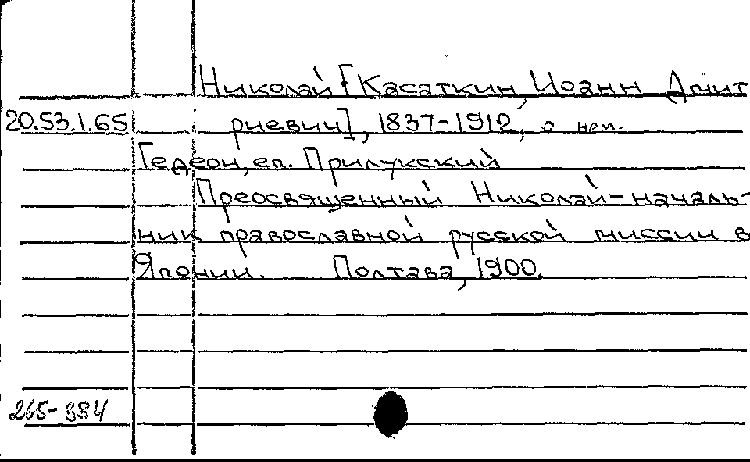 Николай [Касаткин, Иоанн Дмит
20.53.1.65 риевич], 1837-1912, о нем.
Гедеон, еп. Прилукский
Преосвященный Николай-началь-
ник православной русской миссии в
Японии. Полтава, 1900.
265-384